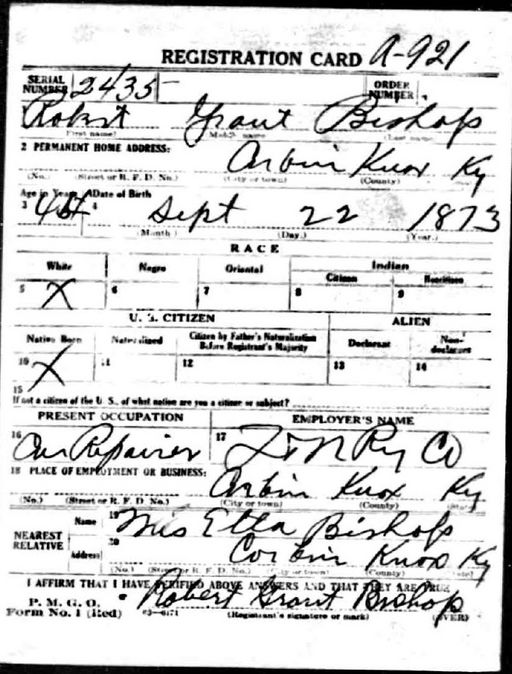 REGISTRATION CARD A-921
SERIAL NUMBER 2435 ORDER NUMBER
Robert Grant Bishop
(First name) (Middle name) (Last name)
2 PERMANENT HOME ADDRESS:
Corbin Knox Ky
(No.) (Street or R. F. D. No.) (City or town) (County)
Age in Years Date of Birth
3 45 4 Sept 22 1873
(Month) (Day.) (Year.)
RACE
White Negro Oriental Indian
Citizen Noncitizen
5 X 6 7 8 9
U. S. CITIZEN ALIEN
Native Born Naturalized Citizen by Father's Naturalization Before Registrant's Majority Declarant Non-declarant
10 X 11 12 13 14
15
If not a citizen of the U. S., of what nation are you a citizen or subject?
PRESENT OCCUPATION EMPLOYER'S NAME
16 Car Repairer 17 L & N Ry Co
18 PLACE OF EMPLOYMENT OR BUSINESS:
Corbin Knox Ky
(No.) (Street or R. F. D. No.) (City or town) (County) (State)
NEAREST RELATIVE Name 19 Mrs Etta Bishop
Address 20 Corbin Knox Ky
(No.) (Street or R. F. D. No.) (City or town) (County) (State)
I AFFIRM THAT I HAVE VERIFIED ABOVE ANSWERS AND THAT THEY ARE TRUE
P. M. G. O.
Form No. 1 (Red) 03-6171 Robert Grant Bishop
(Registrant's signature or mark) (OVER)